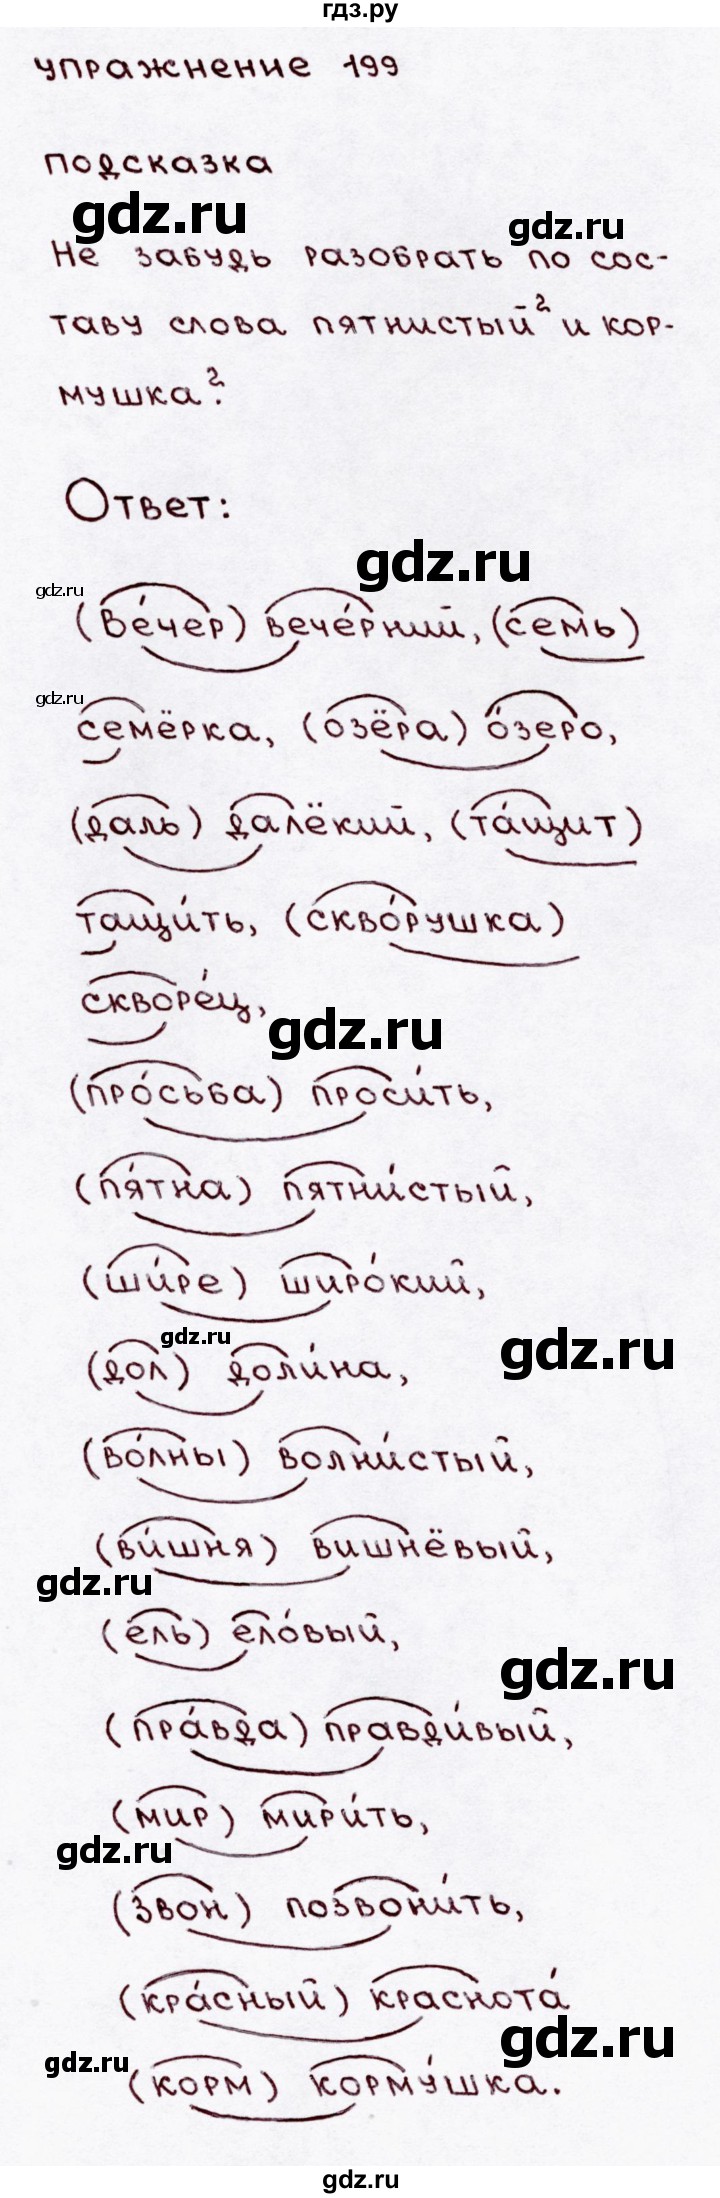 гдз.ру
упражнение 199
подсказка
gdz.ru
gdz.ru
Не забудь разобрать по сос-
таву слова пятнистый² и кор-
мушка²?
Ответ:
gdz.ru
gdz.ru
(ве́чер) вече́рний, (семь)
gdz.ru
семёрка, (озёра) о́зеро,
(даль) далёкий, (та́щит)
тащи́ть, (скво́рушка)
скворе́ц,
gdz.ru
(про́сьба) проси́ть,
(пя́тна) пятни́стый,
(ши́ре) широ́кий,
gdz.ru
gdz.ru
(дол) доли́на,
(во́лны) волни́стый,
(ви́шня) вишнёвый,
gdz.ru
(ель) ело́вый,
gdz.ru
(пра́вда) правди́вый,
(мир) мири́ть,
gdz.ru
(звон) позвони́ть,
(кра́сный) краснота́
gdz.ru
gdz.ru
(корм) корму́шка.
gdz.ru